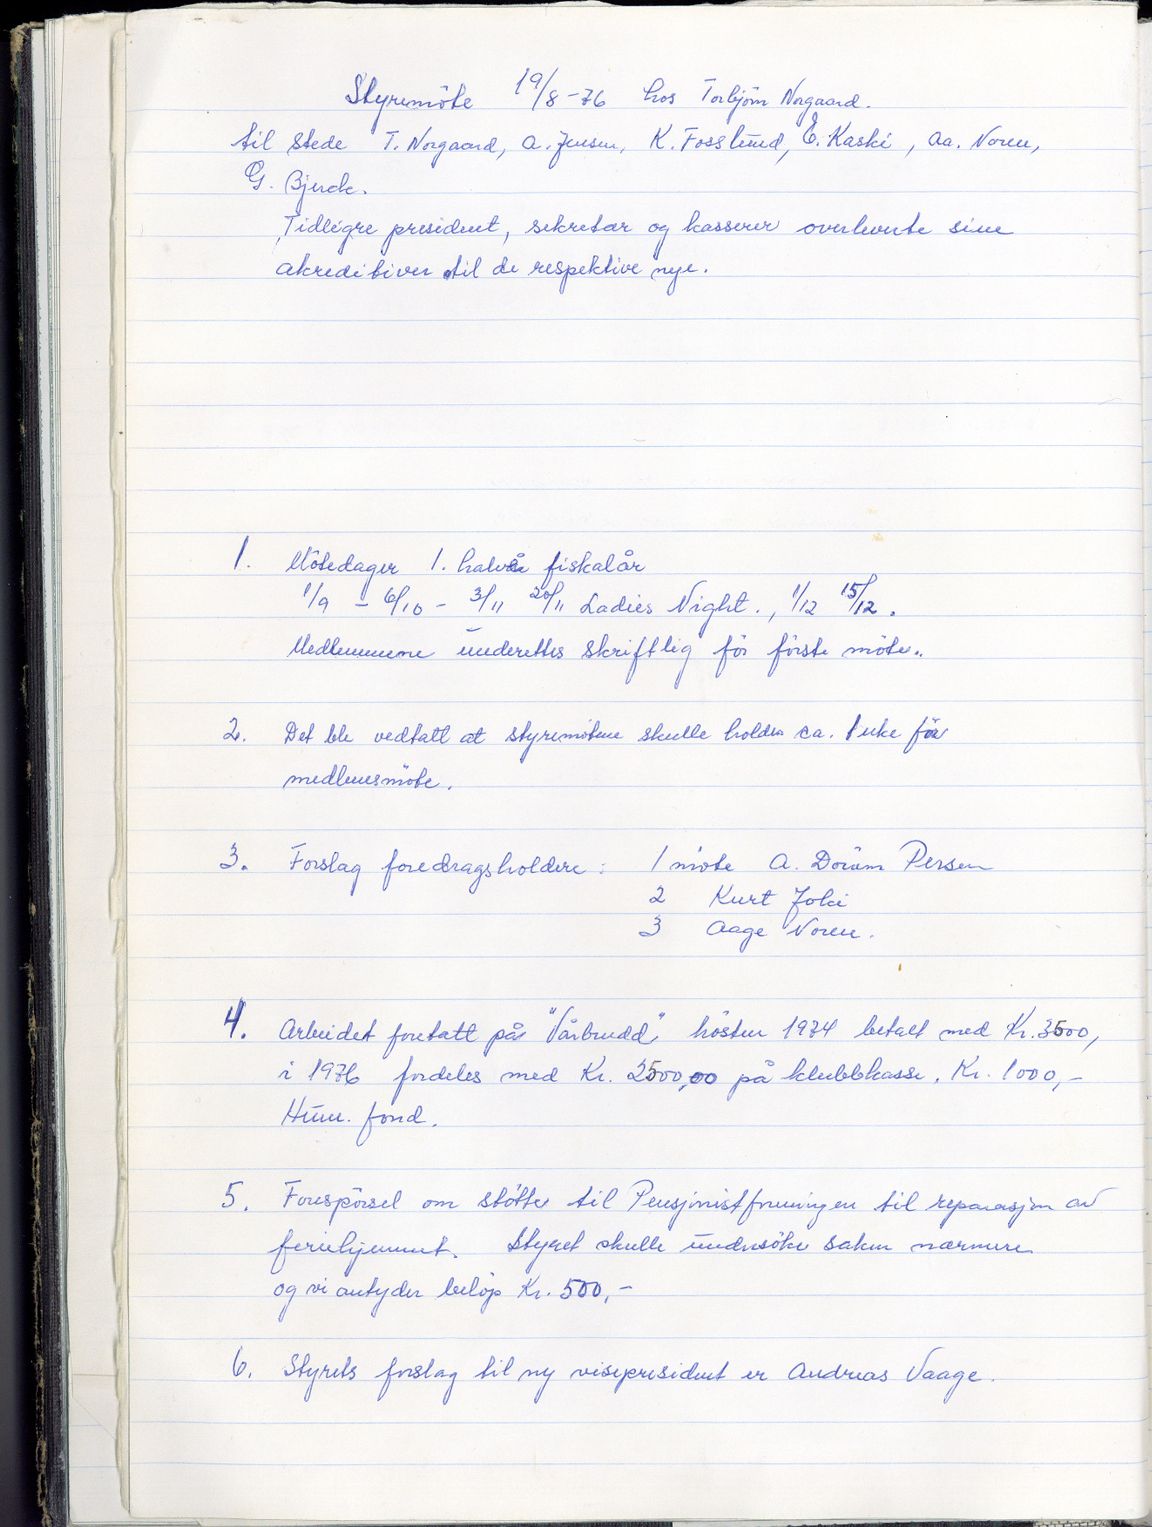 Styremöte 19/8-76 hos Torbjörn Norgaard.
til stede T. Norgaard, A. Jensen, K. Fosslund, E. Kaski, Aa. Noren,
G. Bjerck.
Tidligre president, sekretær og kasserer overleverte sine
akreditiver til de respektive nye.
1. Mötedager 1. halvår fiskalår
1/9 - 6/10 - 3/11 20/11 Ladies Night., 1/12 15/12.
Medlemmene underettes skriftlig för förste möte.
2. Det ble vedtatt at styremötene skulle holdes ca. 1 uke för
medlemsmöte.
3. Forslag foredragsholdere: 1 möte A. Persen
2 Kurt Joki
3 Aage Noren.
4. Arbeidet foretatt på "Vårbrudd" hösten 1974 betalt med Kr. 3500,
i 1976 fordeles med Kr. 2500,00 på klubbkasse. Kr. 1000,-
Hum. fond.
5. Forespörsel om stötte til Pensjonistforeningen til reparasjon av
feriehjemmet. Styret skulle undersöke saken nærmere
og vi antyder belöp Kr. 500,-
6. Styrets forslag til ny visepresident er Andreas Vaage.